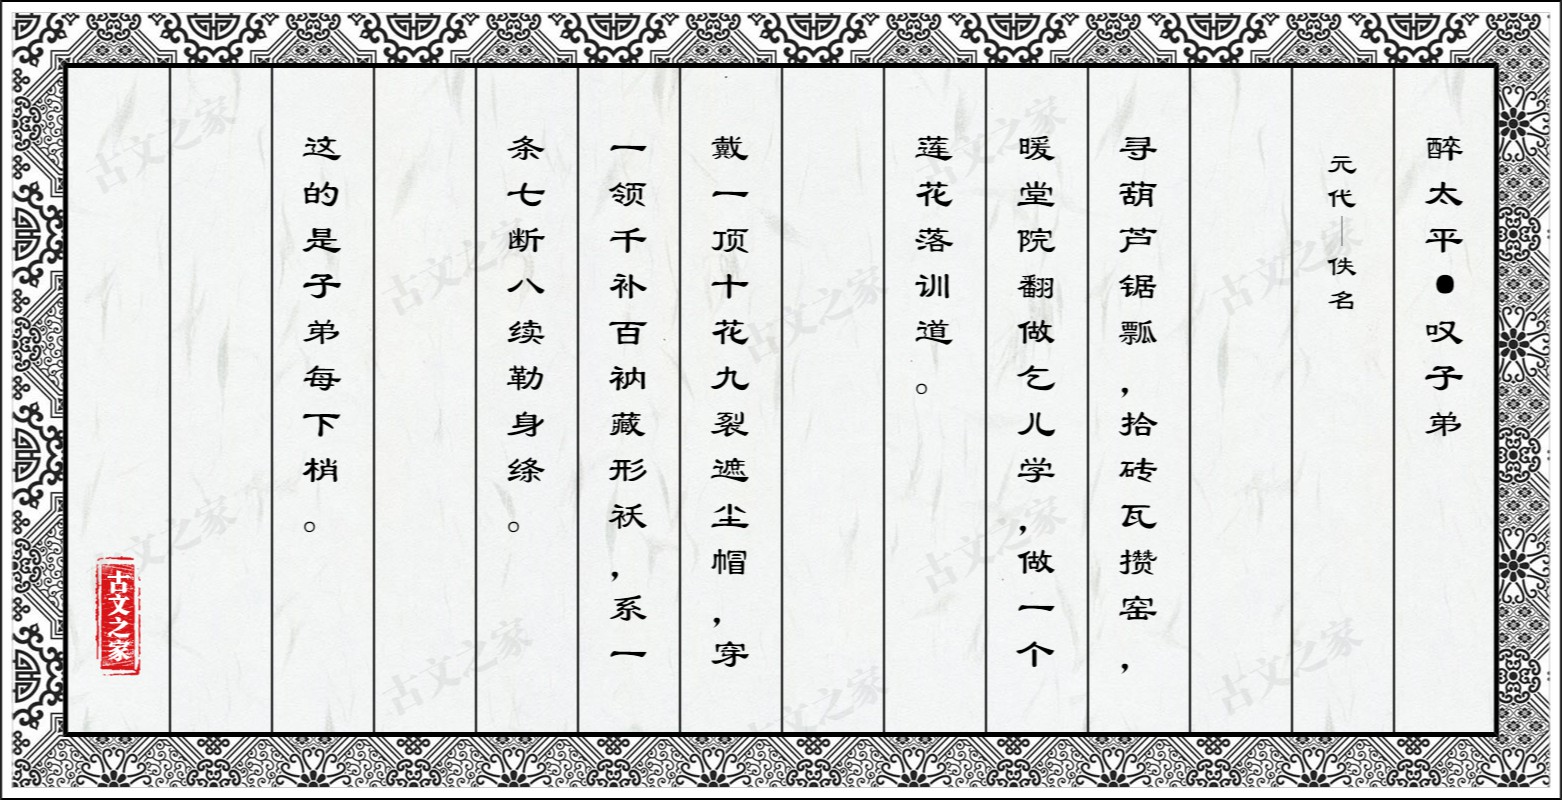 醉太平●叹子弟
元代—佚名
寻葫芦锯瓢，拾砖瓦攒窑，
暖堂院翻做乞儿学，做一个
莲花落训道。
戴一顶十花九裂遮尘帽，穿
一领千补百衲藏形袄，系一
条七断八续勒身绦。
这的是子弟每下梢。
古文之家